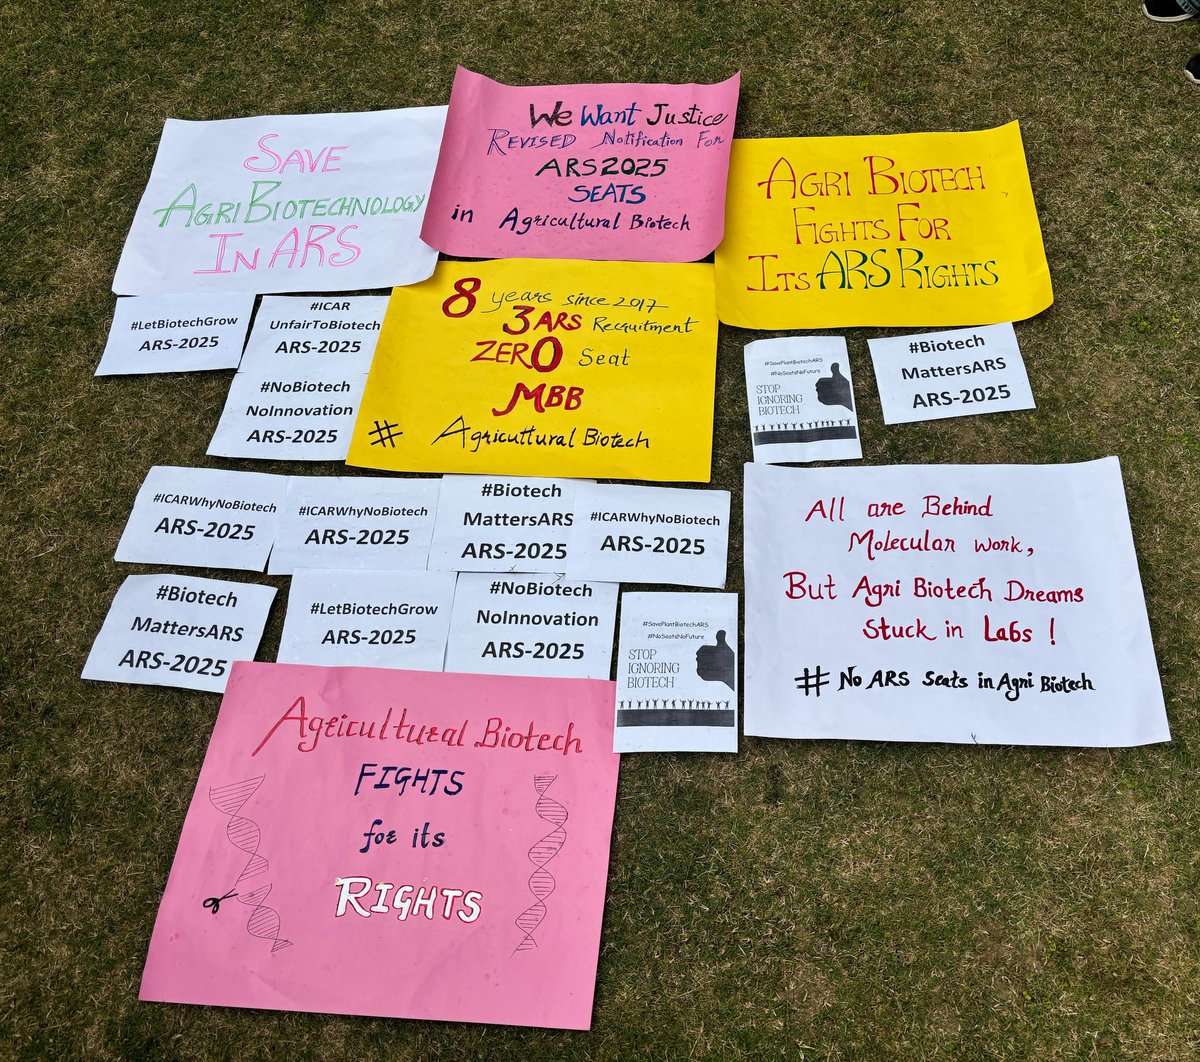 SAVE
AGRI BIOTECHNOLOGY
IN ARS
We Want Justice
REVISED Notification For
ARS2025
SEATS
in Agricultural Biotech
AGRI BIOTECH
FIGHTS FOR
ITS ARS RIGHTS
#LetBiotechGrow
ARS-2025
#ICAR
UnfairToBiotech
ARS-2025
#NoBiotech
NoInnovation
ARS-2025
8 years since 2017
3 ARS Recruitment
ZERO Seat
MBB
# Agricuttural Biotech
#SavePlantBiotechARS
#NoSeatsNoFuture
STOP
IGNORING
BIOTECH
#Biotech
MattersARS
ARS-2025
#ICARWhyNoBiotech
ARS-2025
#ICARWhyNoBiotech
ARS-2025
#Biotech
MattersARS
ARS-2025
#ICARWhyNoBiotech
ARS-2025
All are Behind
Molecular work,
But Agri Biotech Dreams
Stuck in Labs !
# No ARS Seats in Agri Biotech
#Biotech
MattersARS
ARS-2025
#LetBiotechGrow
ARS-2025
#NoBiotech
NoInnovation
ARS-2025
#SavePlantBiotechARS
#NoSeatsNoFuture
STOP
IGNORING
BIOTECH
Agricultural Biotech
FIGHTS
for its
RIGHTS